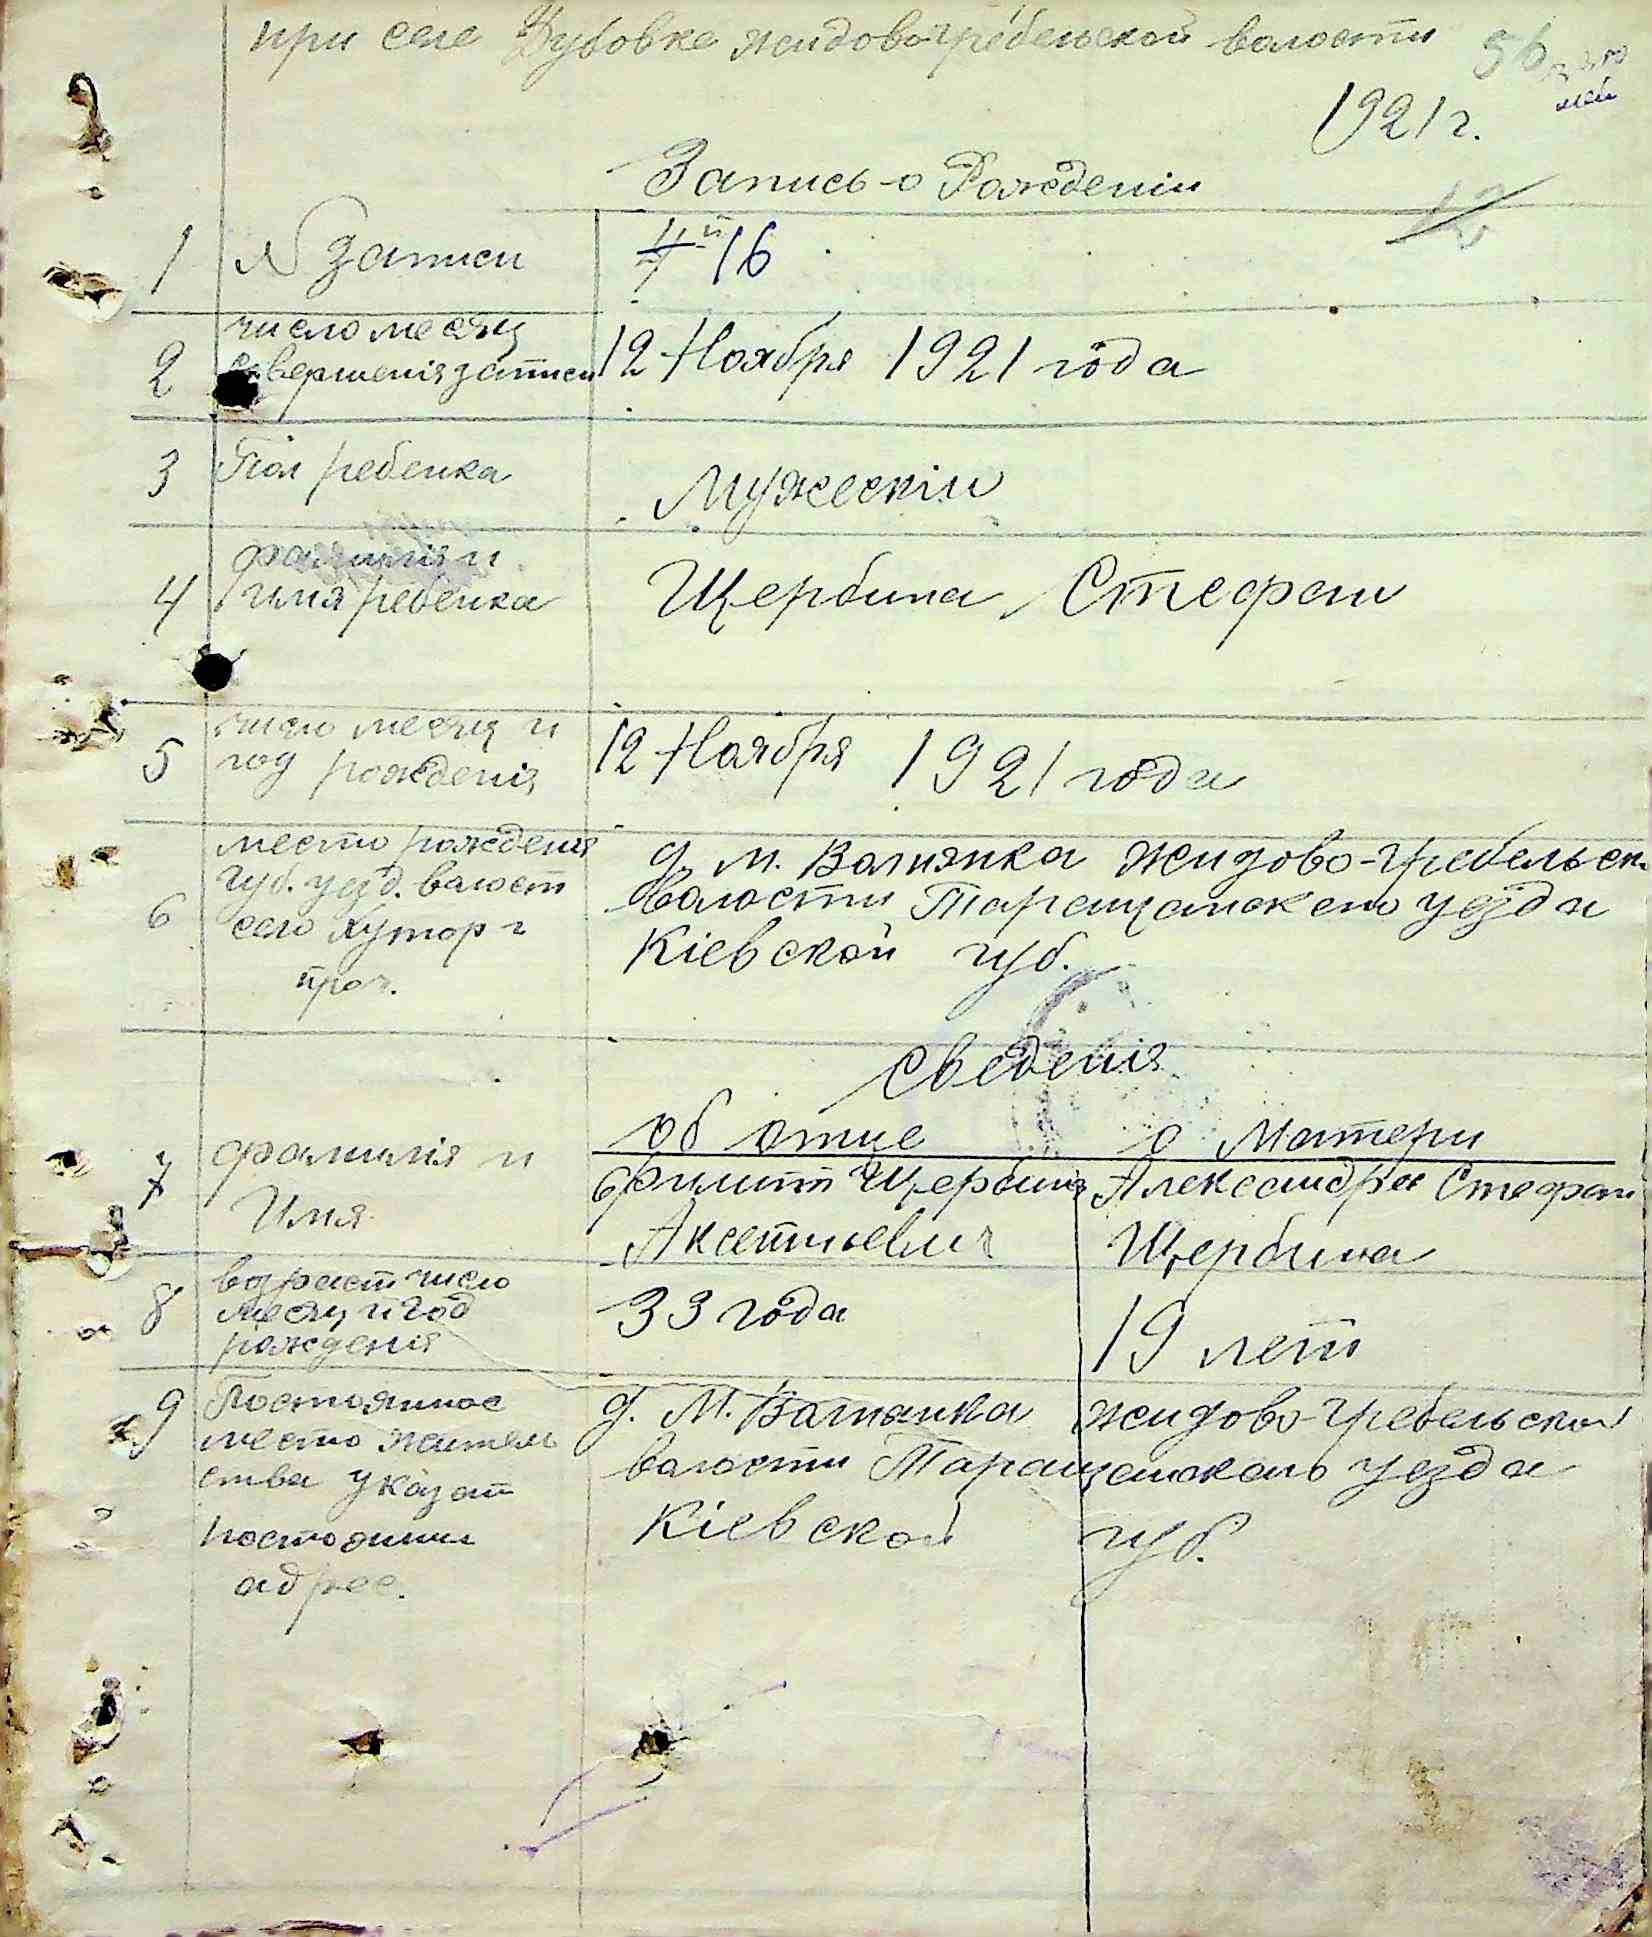 при селе Дубовке жидово-гребельской волости
56
1921 г.
Запись о Рожденіи
1 № записи 16
2 число месяц
совершенія записи 12 Ноября 1921 года
3 Пол ребенка Мужескій
4 фамилія и
имя ребенка Щербина Стефан
5 число месяц и
год рожденія 12 Ноября 1921 года
6 место рожденія
губ. уезд. волост
село хутор и
проч.
д. М. Волнянка жидово-гребельск.
волости Таращанскаго уезда
Кіевской губ.
Сведенія
об отце о Матери
7 фамилія и
Имя
Филипп Щербина
Аксентьевич
Александра Стефан
Щербина
8 возраст число
месяц и год
рожденія
33 года
19 лет
9 Постоянное
место жител
ства указат
постоянни
адрес.
д. М. Волнянка жидово-гребельской
волости Таращанскаго уезда
Кіевской губ.